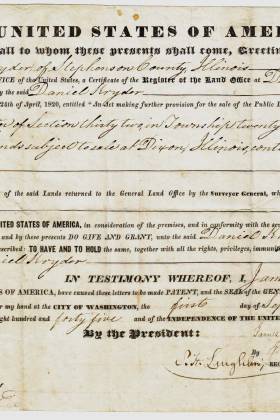 UNITED STATES OF AME
all to whom these presents shall come, Greetin
ryder of Stephenson County, Illinois
FICE of the United States, a Certificate of the Register of the Land Office at D
by the said Daniel Kryder
24th of April, 1820, entitled "An Act making further provision for the sale of the Public L
of Section thirty two in Township twenty
ands subject to sale at Dixon, Illinois, cont
of the said Lands returned to the General Land Office by the Surveyor General, wh
UNITED STATES OF AMERICA, in consideration of the premises, and in conformity with the sev
and by these presents DO GIVE AND GRANT, unto the said Daniel K
escribed: TO HAVE AND TO HOLD the same, together with all the rights, privileges, immuniti
niel Kryder
IN TESTIMONY WHEREOF, I, Jam
S OF AMERICA, have caused these letters to be made PATENT, and the SEAL of the GEN
er my hand at the CITY OF WASHINGTON, the first day of Sep
ght hundred and forty five and of the INDEPENDENCE OF THE UNITED
By the President: James
By
S. H. Laughlin, REC